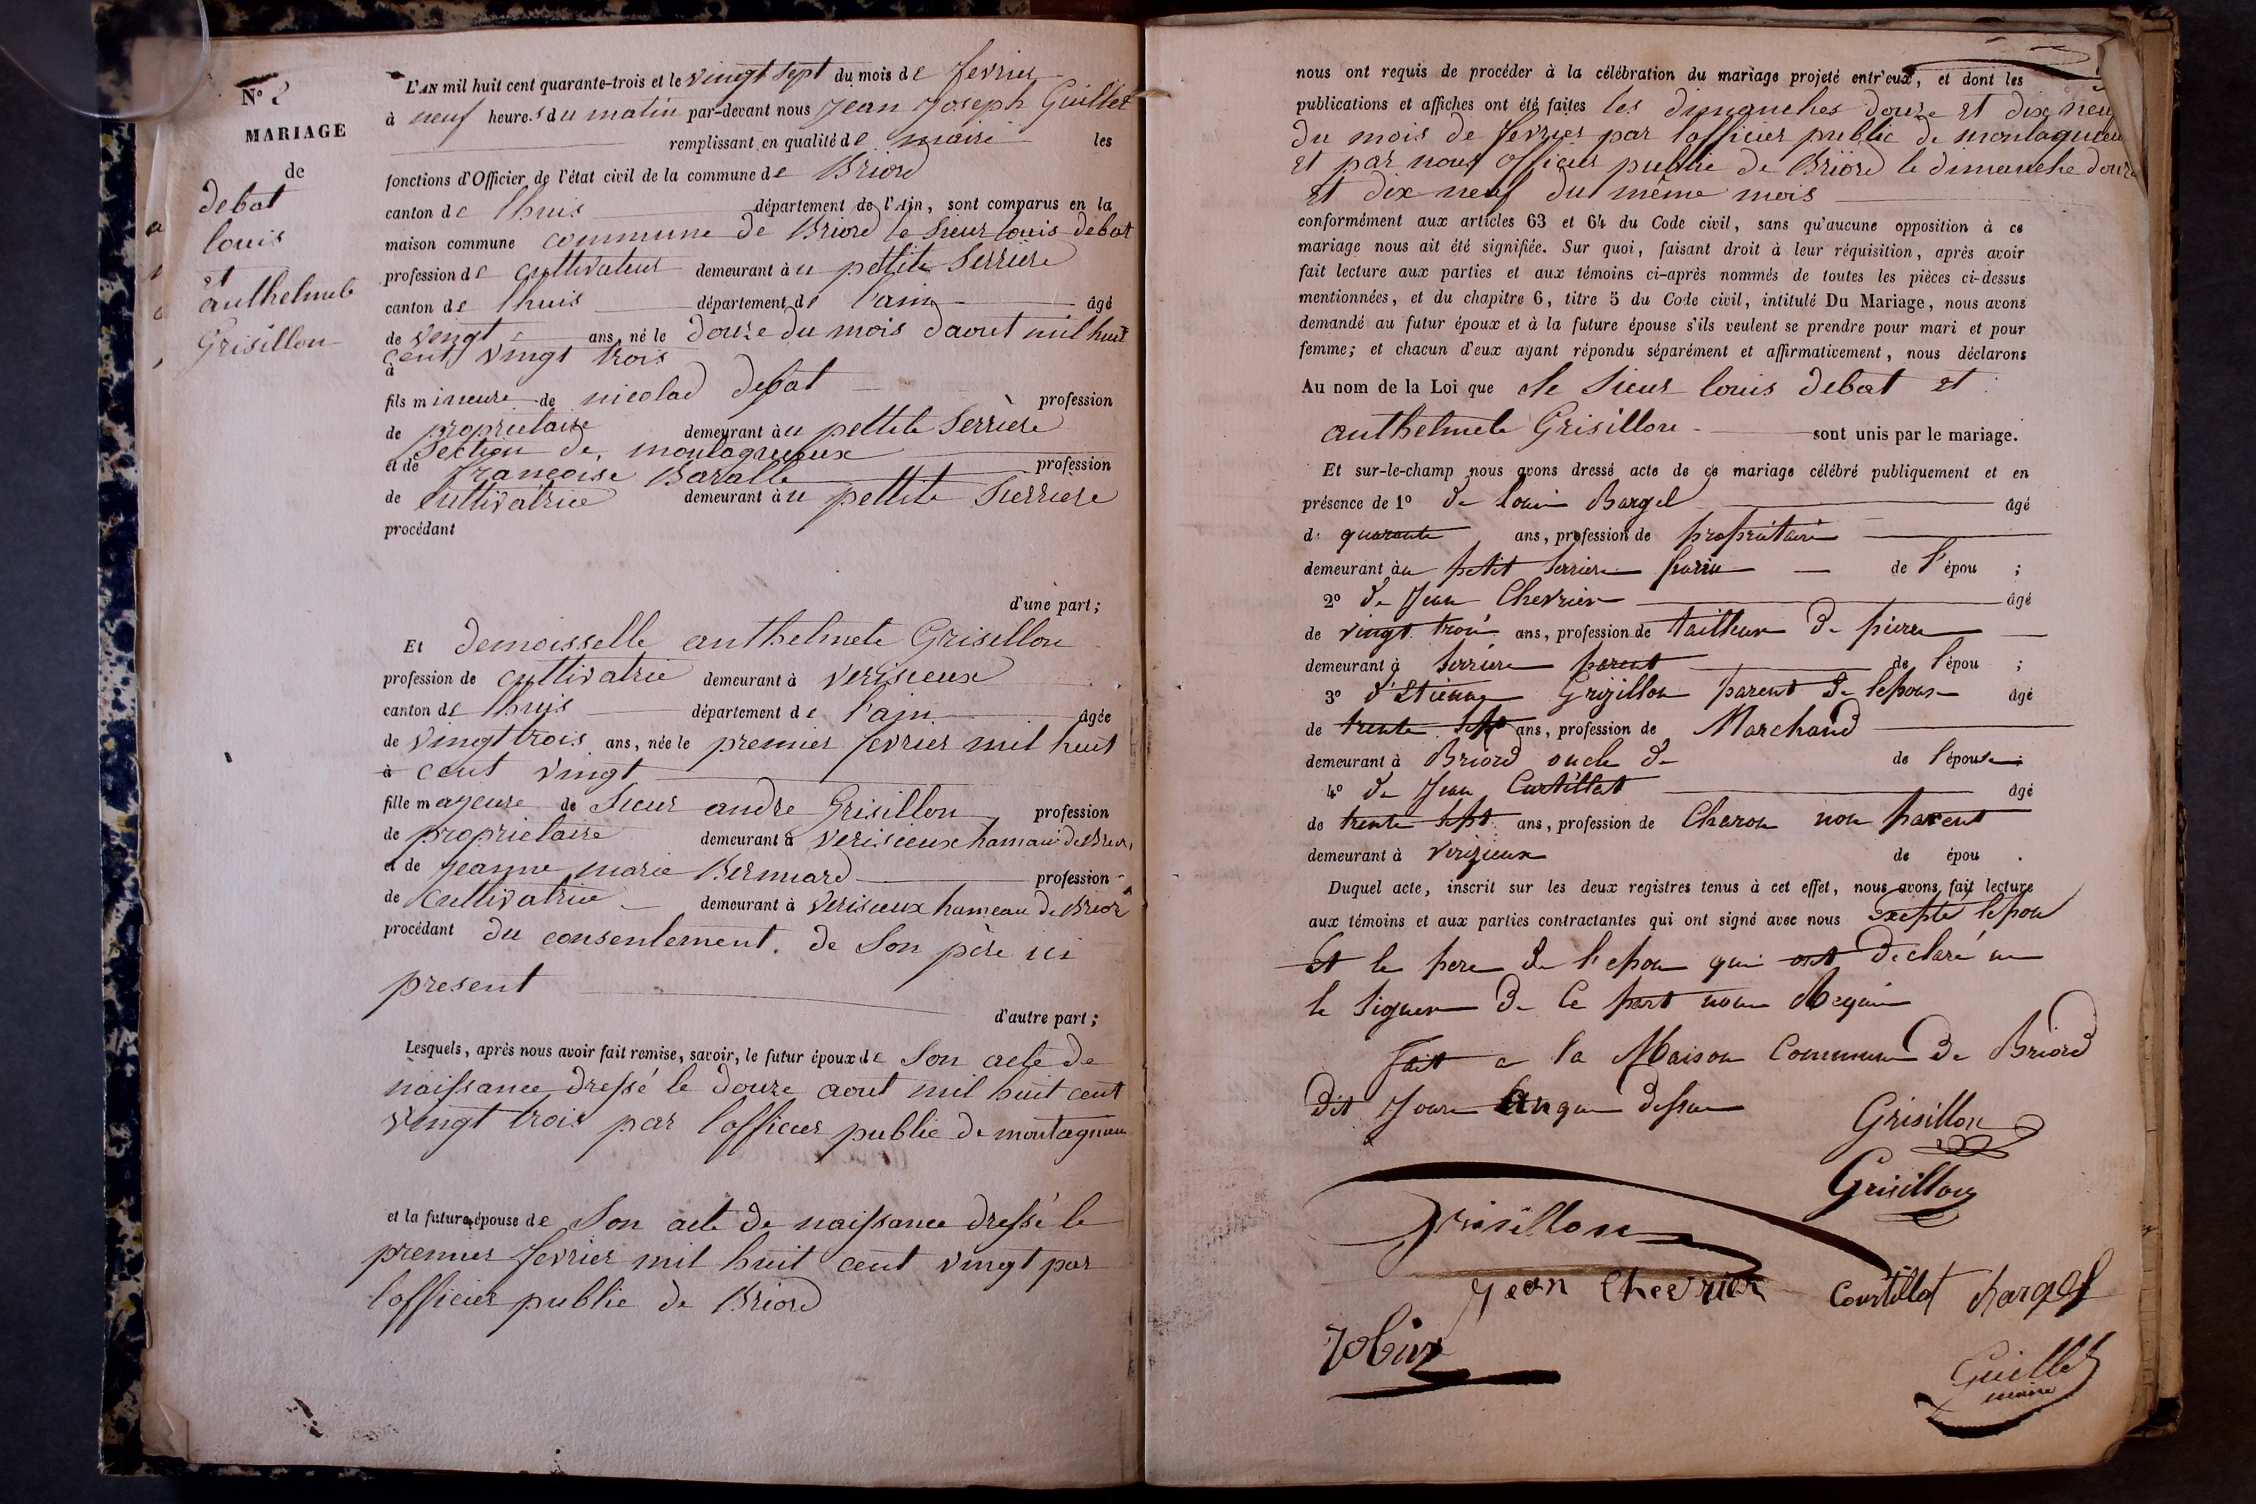 N° 2
MARIAGE
de
debat
louis
et
anthelmete
Grisillon
L'AN mil huit cent quarante-trois et le vingt sept du mois de fevrier
à neuf heures du matin par-devant nous Jean Joseph Guillet
remplissant en qualité de maire les
fonctions d'Officier de l'état civil de la commune de Briord
canton de lhuis département de l'Ain, sont comparus en la
maison commune commune de Briord le Sieur louis debat
profession de cultivateur demeurant à u pettite Serriere
canton de lhuis département de l'ain âgé
de vingt ans, né le douze du mois daout mil huit
cent vingt trois
à
fils mineure de nicolad debat profession
de proprietaire demeurant à u pettite Serriere
Section de montagnieux
et de françoise Baralle profession
de cultivatrice demeurant à u pettite Sierriere
procédant
d'une part;
Et demoisselle anthelmete Grisillon
profession de cultivatrie demeurant à verisieux
canton de lhuis département de l'ain âgée
de vingt trois ans, née le premier fevrier mil huit
à cent vingt
fille mayeure de Sieur andre Grisillon profession
de proprietaire demeurant à verisieux hamau de Brior
et de Jeanne marie Bernnard profession
de cultivatrice demeurant à verisieux hameau de Brior
procédant du consentement de Son père ici
present
d'autre part;
Lesquels, après nous avoir fait remise, savoir, le futur époux de Son acte de
naissance dressé le douze aout mil huit cent
vingt trois par lofficier public de montagnieu
et la future épouse de Son acte de naissance dressé le
premier fevrier mil huit cent vingt par
lofficier public de Briord
nous ont requis de procéder à la célébration du mariage projeté entr'eux, et dont les
publications et affiches ont été faites les dimanches douze et dix neuf
du mois de fevrier par lofficier public de montagnieu
et par nous officier public de Briord le dimanche douze
et dix neuf du meme mois
conformément aux articles 63 et 64 du Code civil, sans qu'aucune opposition à ce
mariage nous ait été signifiée. Sur quoi, faisant droit à leur réquisition, après avoir
fait lecture aux parties et aux témoins ci-après nommés de toutes les pièces ci-dessus
mentionnées, et du chapitre 6, titre 5 du Code civil, intitulé Du Mariage, nous avons
demandé au futur époux et à la future épouse s'ils veulent se prendre pour mari et pour
femme; et chacun d'eux ayant répondu séparément et affirmativement, nous déclarons
Au nom de la Loi que le Sieur louis debat et
anthelmete Grisillon sont unis par le mariage.
Et sur-le-champ nous avons dressé acte de ce mariage célébré publiquement et en
présence de 1° de louis Bargel âgé
de quarante ans, profession de propriétaire
demeurant à u petit Serriere de l'épou ;
2° de Jean Chevrier âgé
de vingt trois ans, profession de tailleur de pierre
demeurant à Serriere parent de l'épou ;
3° d'Etienne Grizillon parent de lepouse âgé
de trente sept ans, profession de Marchand
demeurant à Briord oncle de de l'épouse;
4° de Jean Curtillat âgé
de trente sept ans, profession de Charon non parent
demeurant à Verizieux de épou .
Duquel acte, inscrit sur les deux registres tenus à cet effet, nous avons fait lecture
aux témoins et aux parties contractantes qui ont signé avec nous Excepté lepou
Et le pere de l'epou qui ont declaré ne
le Signer de ce part nous Requis
fait a la Maison Commune de Briord
Dit Jour An que dessus
Grisillon
Grisillon
Grisillon
Jean Chevrier Courtillat Bargel
Guillet
maire